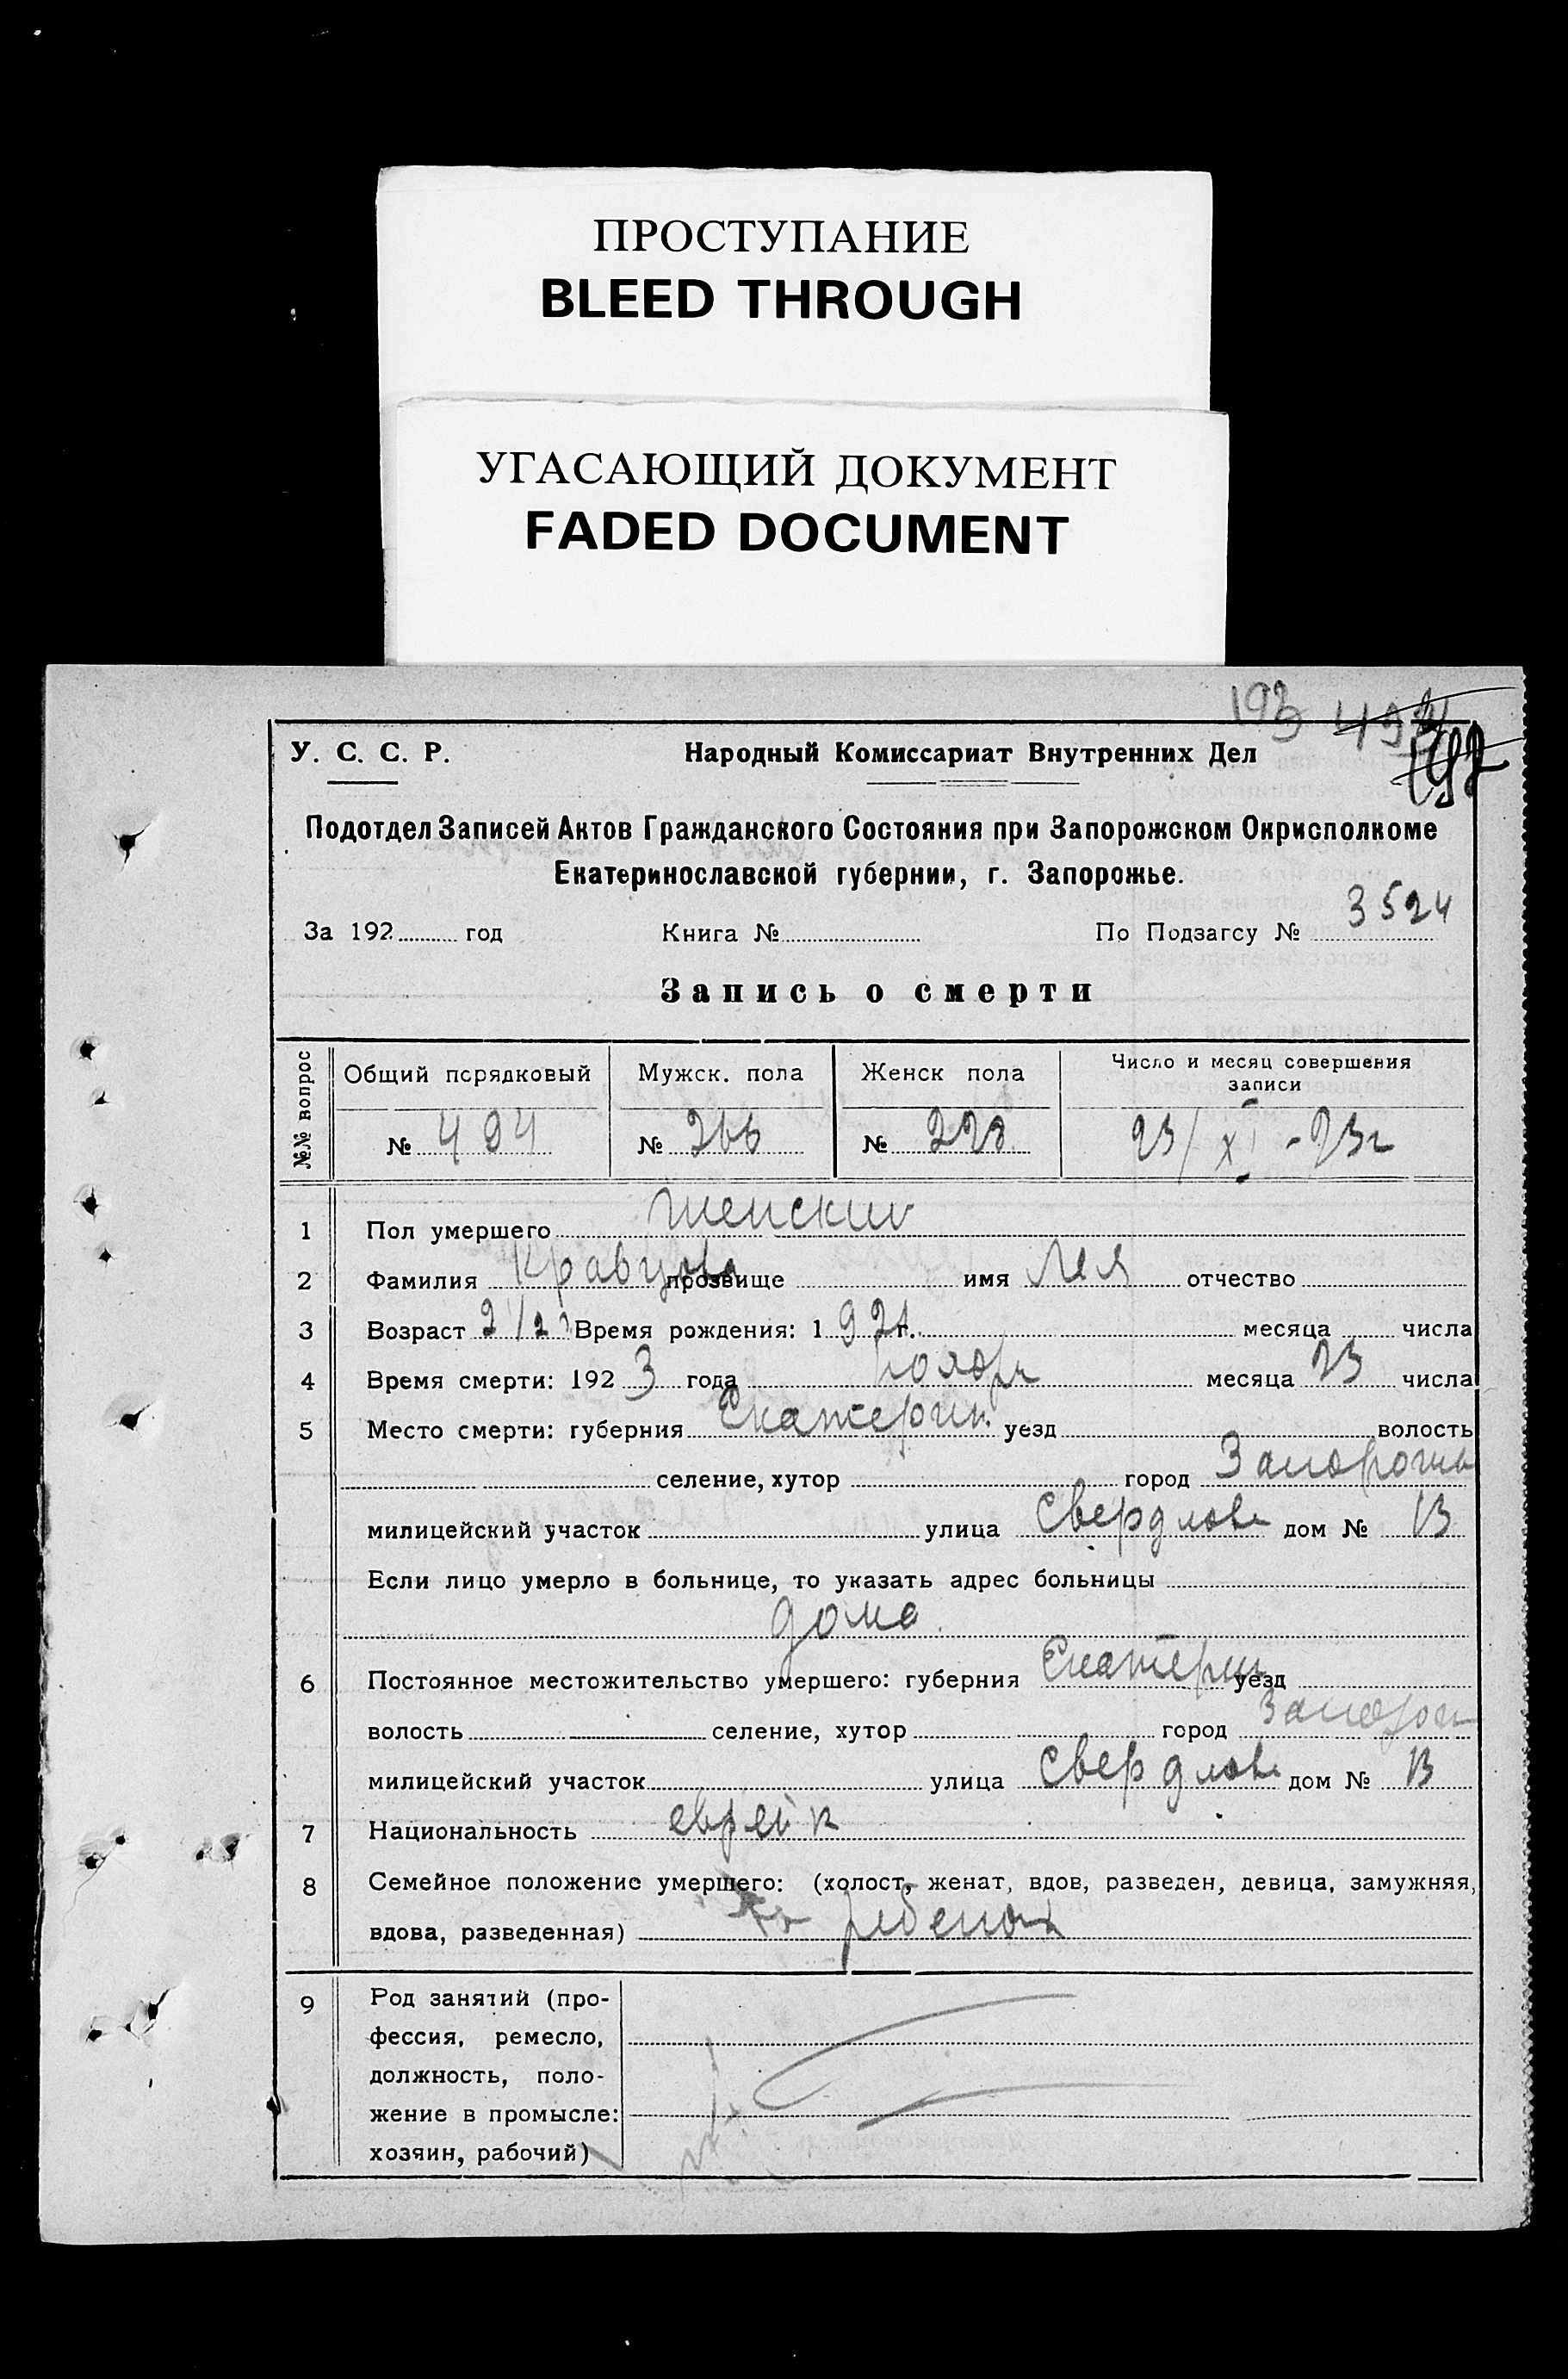 ПРОСТУПАНИЕ
BLEED THROUGH
УГАСАЮЩИЙ ДОКУМЕНТ
FADED DOCUMENT
193 493
192
У. С. С. Р. Народный Комиссариат Внутренних Дел
Подотдел Записей Актов Гражданского Состояния при Запорожском Окрисполкоме
Екатеринославской губернии, г. Запорожье.
За 192 год Книга № По Подзагсу № 3524
Запись о смерти
№№ вопрос Общий порядковый Мужск. пола Женск пола Число и месяц совершения
записи
№ 494 № 266 № 228 23/XI - 23г
1 Пол умершего женский
2 Фамилия Кравцова прозвище имя Лея отчество
3 Возраст 2 1/2 Время рождения: 1921 г. месяца числа
4 Время смерти: 1923 года ноябр месяца 23 числа
5 Место смерти: губерния Екатерин. уезд волость
селение, хутор город Запорожье
милицейский участок улица Свердлова дом № 13
Если лицо умерло в больнице, то указать адрес больницы
дома
6 Постоянное местожительство умершего: губерния Екатерин уезд
волость селение, хутор город Запорож
милицейский участок улица Свердлова дом № 13
7 Национальность еврейк
8 Семейное положение умершего: (холост, женат, вдов, разведен, девица, замужняя,
вдова, разведенная) ребенок
9 Род занятий (про-
фессия, ремесло,
должность, поло-
жение в промысле:
хозяин, рабочий)